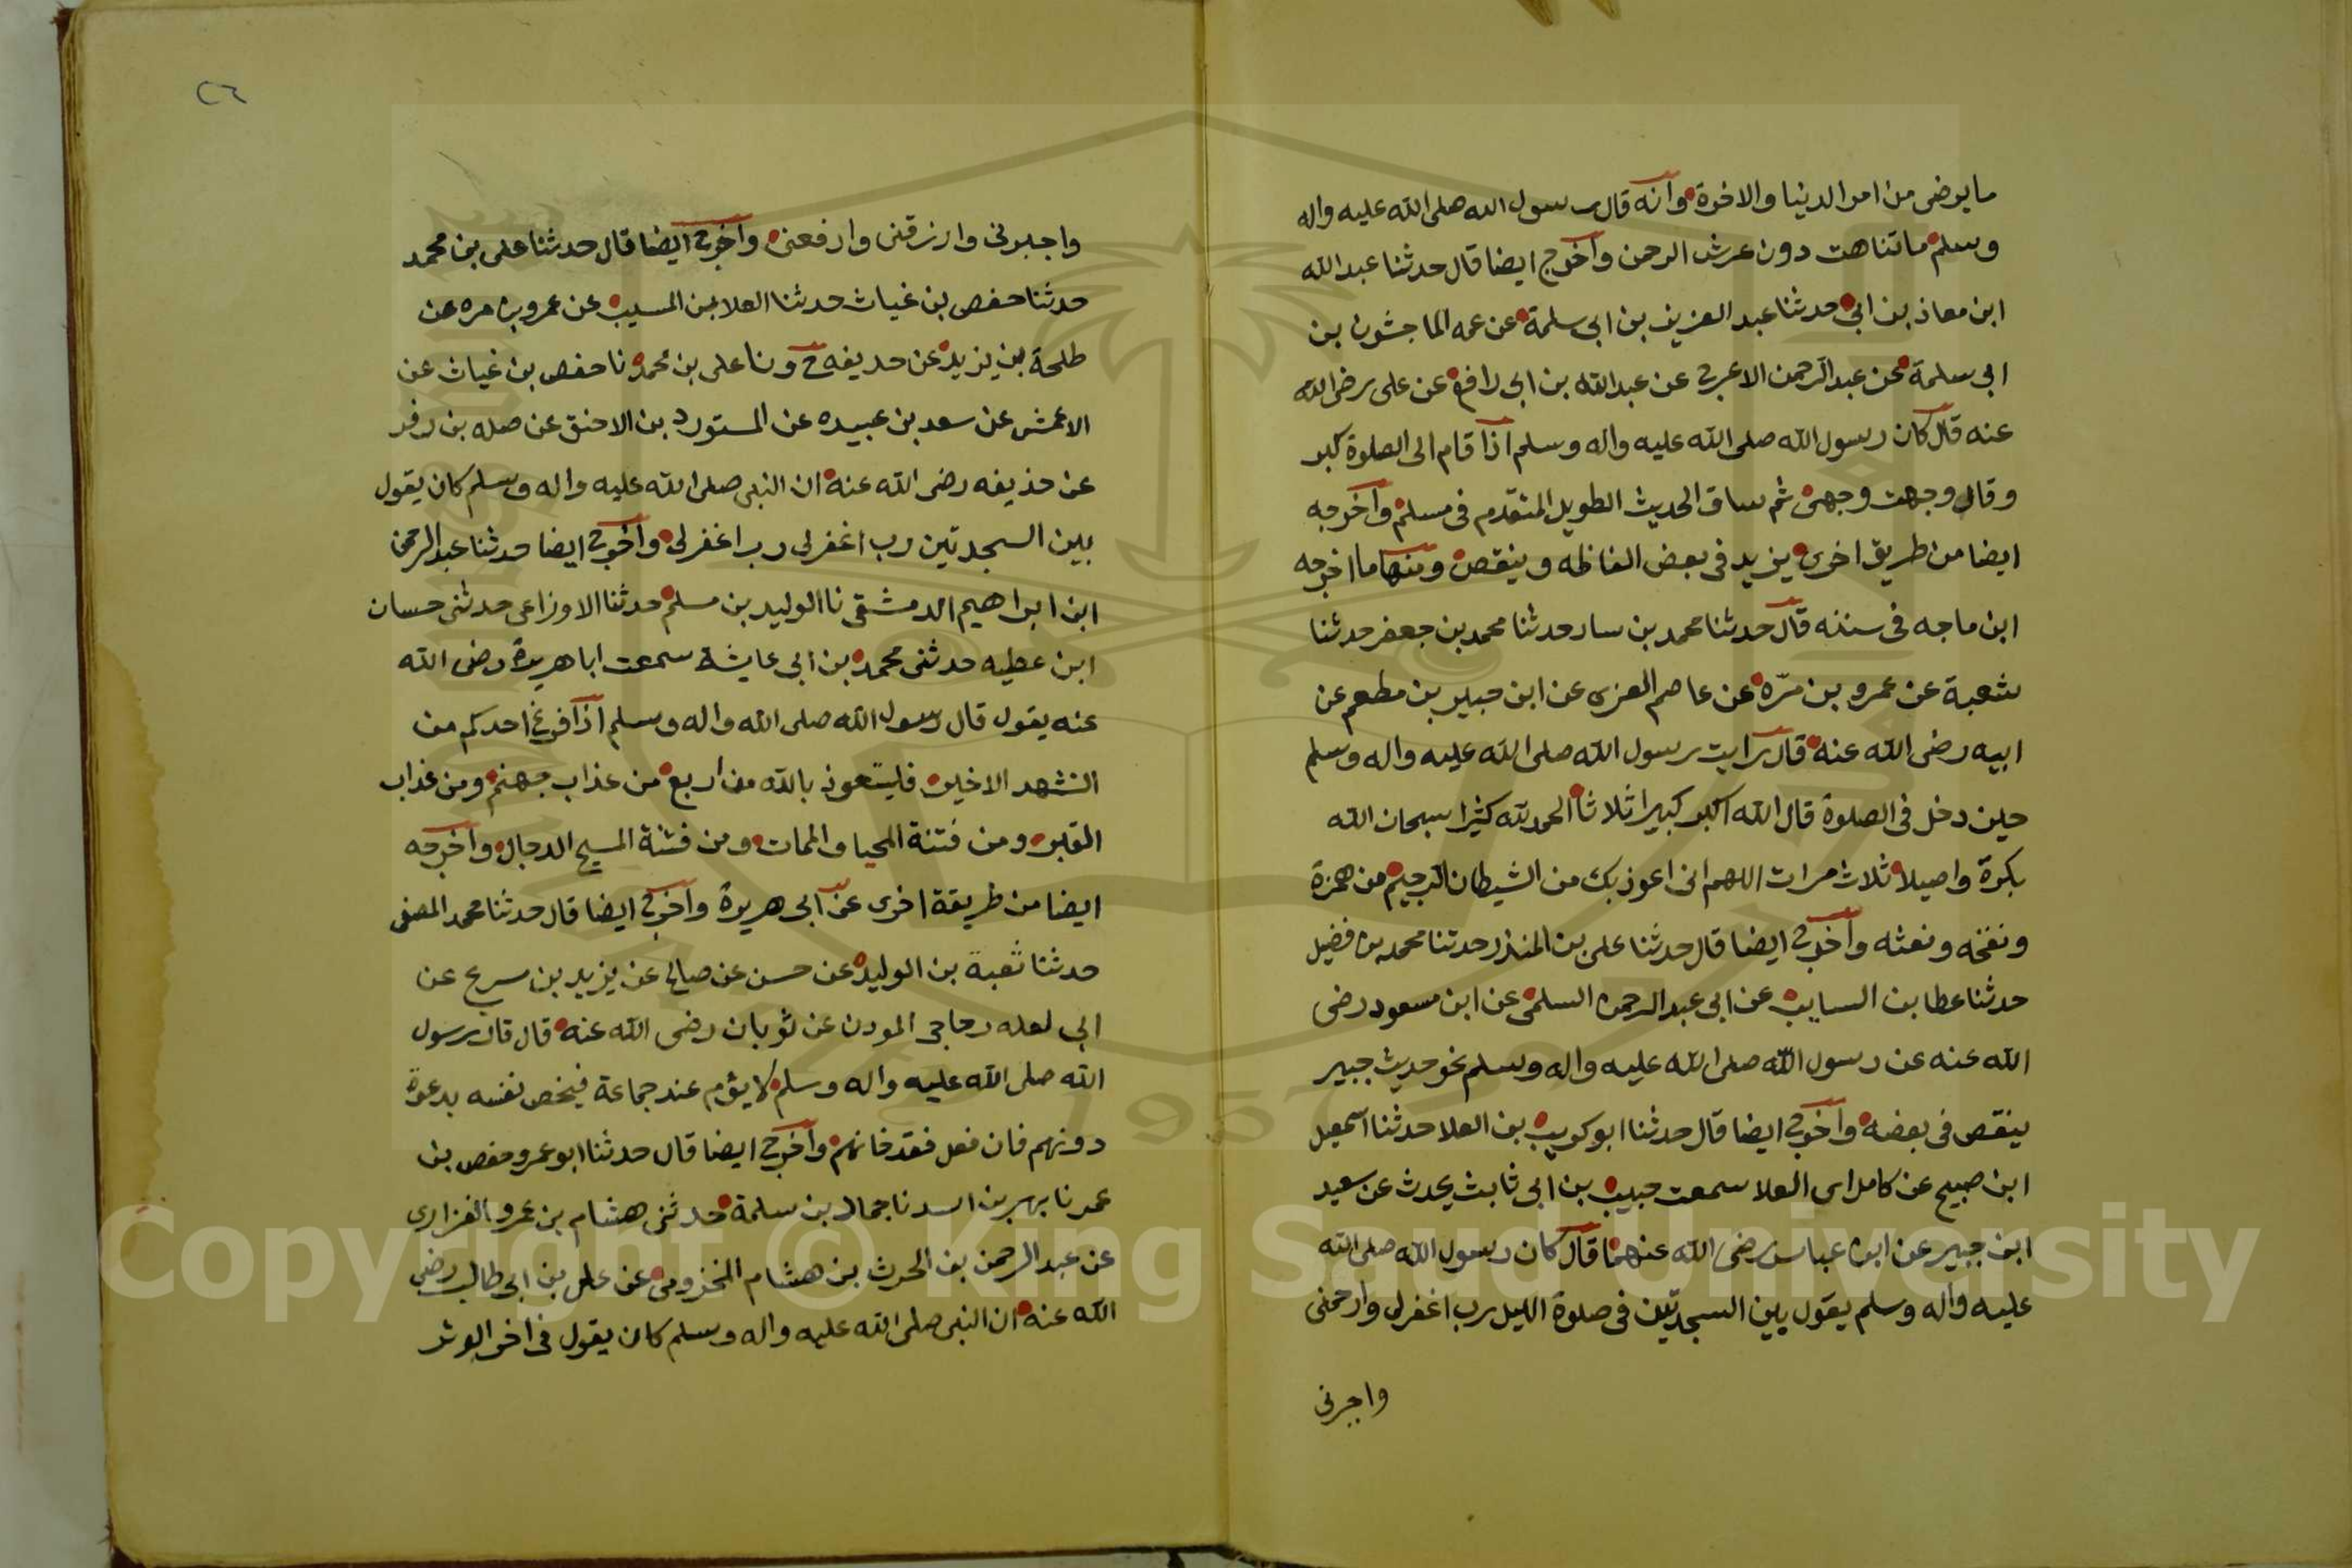 ما يرضى من امر الدينا والاخرة وانه قال رسول الله صلى الله عليه واله
وسلم ما تناهت دون عرش الرحمن واخرج ايضا قال حدثنا عبد الله
ابن معاذ بن ابى حدثنا عبد العزيز بن ابى سلمة عن عمه الماجشون بن
ابى سلمة عن عبد الرحمن الاعرج عن عبد الله بن ابى رافع عن على رضى الله
عنه قال كان رسول الله صلى الله عليه واله وسلم اذا قام الى الصلوة كبر
وقال وجهت وجهى ثم ساق الحديث الطويل المتقدم فى مسلم واخرجه
ايضا من طريق اخرى يزيد فى بعض الفاظه وينقص ومنها ما اخرجه
ابن ماجه فى سننه قال حدثنا محمد بن سار حدثنا محمد بن جعفر حدثنا
شعبة عن عمرو بن مرّه عن عاصم العنزى عن ابن جبير بن مطعم عن
ابيه رضى الله عنه قال رايت رسول الله صلى الله عليه واله وسلم
حين دخل فى الصلوة قال الله اكبر كبيرا ثلاثا الحمد لله كثيرا سبحان الله
بكرة واصيلا ثلاث مرات اللهم انى اعوذ بك من الشيطان الرجيم من همزة
ونفخه ونفثه واخرج ايضا قال حدثنا على بن المنذر حدثنا محمد بن فضيل
حدثنا عطا بن السايب عن ابى عبد الرحمن السلمى عن ابن مسعود رضى
الله عنه عن رسول الله صلى الله عليه واله وسلم نحو حديث جبير
ينقص فى بعضه واخرج ايضا قال حدثنا ابو كريب بن العلا حدثنا اسمعيل
ابن صبيح عن كامل ابى العلا سمعت حبيب بن ابى ثابت يحدث عن سعيد
ابن جبير عن ابن عباس رضى الله عنهما قال كان رسول الله صلى الله
عليه واله وسلم يقول بين السجدتين فى صلوة الليل رب اغفرلى وارحمنى
واجبرنى
٢٦
واجبرنى وارزقنى وارفعنى واخرج ايضا قال حدثنا على بن محمد
حدثنا حفص بن غياث حدثنا العلا بن المسيب عن عمرو بن مره عن
طلحة بن يزيد عن حديفه ح ونا على بن محمد نا حفص بن غياث عن
الاعمش عن سعد بن عبيده عن المستورد بن الاحنق عن صله بن زفر
عن حذيفه رضى الله عنه ان النبى صلى الله عليه واله وسلم كان يقول
بين السجدتين رب اغفرلى رب اغفرلى واخرج ايضا حدثنا عبد الرحمن
ابن ابراهيم الدمشقى نا الوليد بن مسلم حدثنا الاوزاعى حدثنى حسان
ابن عطيه حدثنى محمد بن ابى عايشة سمعت ابا هريرة رضى الله
عنه يقول قال رسول الله صلى الله واله وسلم اذا فرغ احدكم من
التشهد الاخير فليتعوذ بالله من اربع من عذاب جهنم ومن عذاب
القبر ومن فتنة المحيا والممات ومن فتنة المسيح الدجال واخرجه
ايضا من طريقة اخرى عن ابى هريرة واخرج ايضا قال حدثنا محمد المصفى
حدثنا بن الوليد عن حسن عن صالح عن يزيد بن سرع عن
ابى المودن عن ثوبان رضى الله عنه قال قال رسول
الله صلى الله عليه واله وسلم لا يؤم عند جماعة فيخص نفسه بدعوة
دونهم فان فعل فقد خانهم واخرج ايضا قال حدثنا ابو عمرو حفص بن
عمرنا بهز بن اسد نا حماد بن سلمة حدثنى هشام بن عمرو الفزارى
عن عبد الرحمن بن الحرث بن هشام المخزومى عن على بن ابى طالب رضى
الله عنه ان النبى صلى الله عليه واله وسلم كان يقول فى اخر الوتر
Copyright © King Saud University
1957